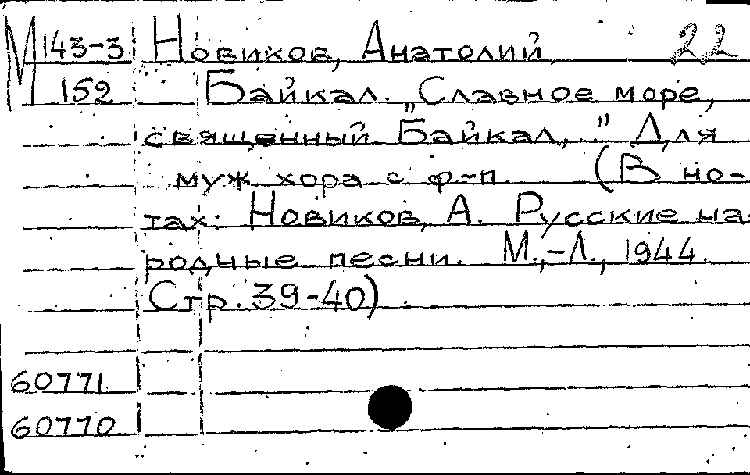 М 143-3 Новиков, Анатолий 22
152 Байкал. „Славное море,
священный Байкал,." Для
муж хора с ф-п. (В но-
тах: Новиков, А. Русские на-
родные песни. М.,-Л., 1944.
Стр. 39-40)
60771
60770